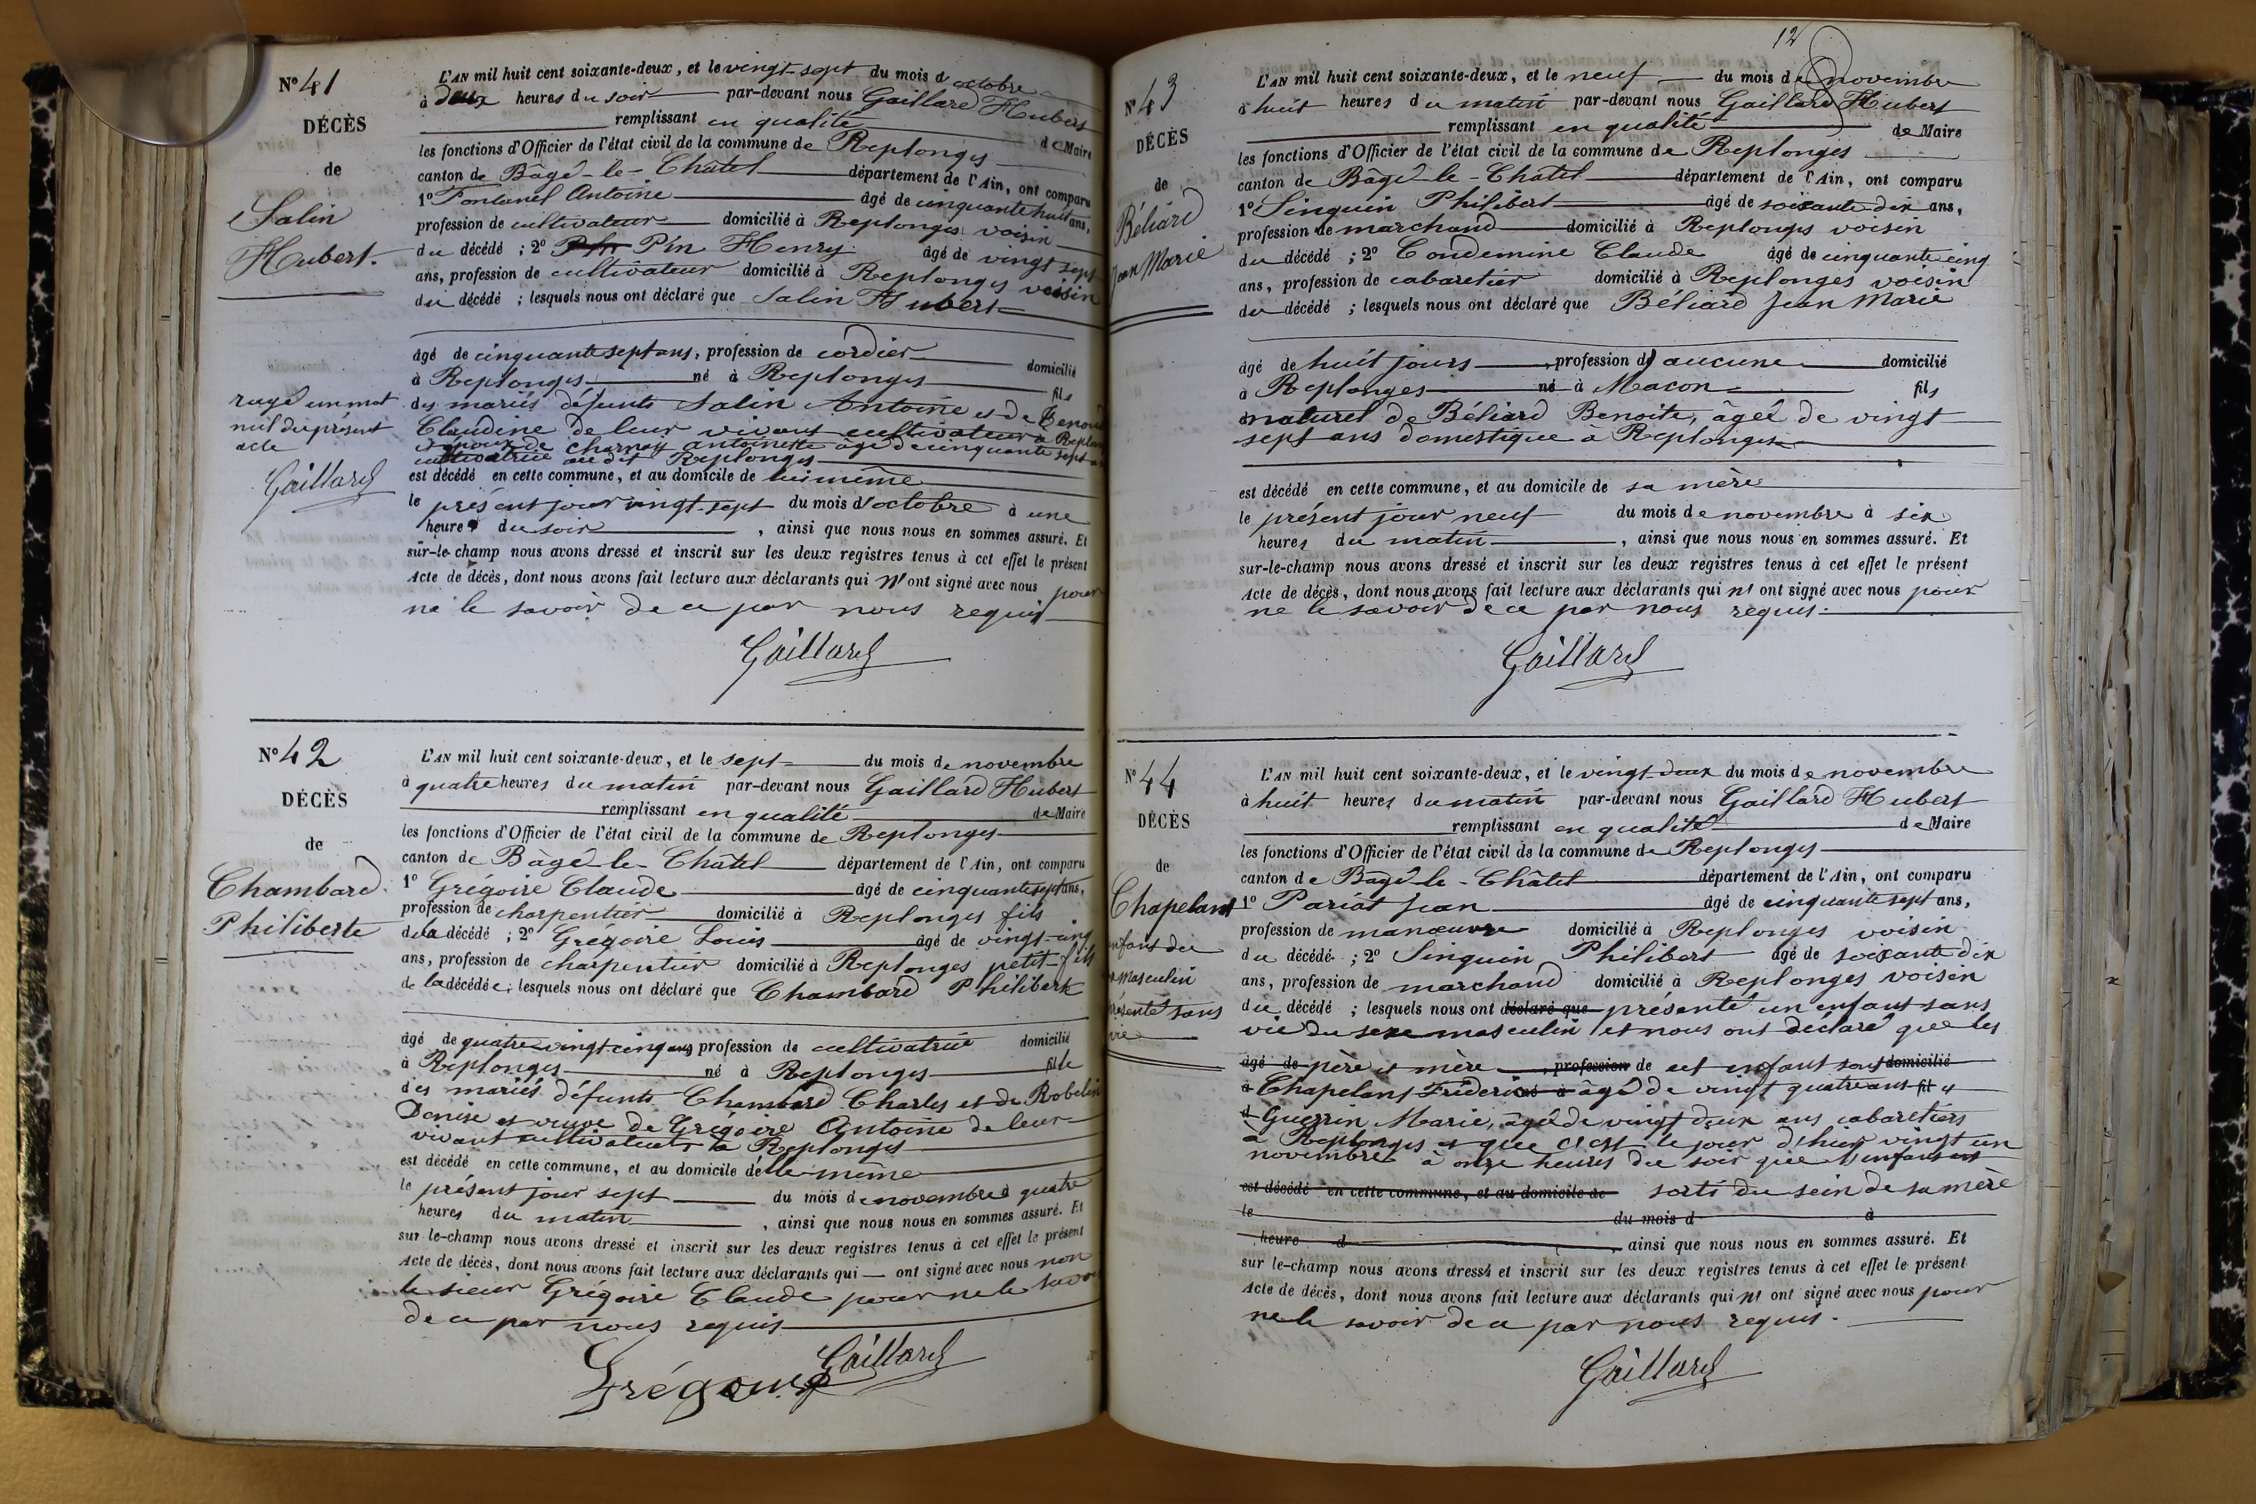 N° 41
DÉCÈS
de
Salin
Hubert.
rayé un mot
nul du présent
acte
Gaillard
L'AN mil huit cent soixante-deux, et le vingt-sept du mois d'octobre
à deux heures du soir par-devant nous Gaillard Hubert
remplissant en qualité de Maire
les fonctions d'Officier de l'état civil de la commune de Replonges
canton de Bâgé-le-Châtel département de l'Ain, ont comparu
1° Fontanel Antoine âgé de cinquante huit ans,
profession de cultivateur domicilié à Replonges voisin
du décédé ; 2° Pin Henry âgé de vingt sept
ans, profession de cultivateur domicilié à Replonges voisin
du décédé ; lesquels nous ont déclaré que Salin Hubert
âgé de cinquante sept ans, profession de cordier domicilié
à Replonges né à Replonges fils
des mariés défunts Salin Antoine et de
Claudine de leur vivant cultivateurs à
et époux de Charnay Antoinette âgée de cinquante sept
cultivatrice au dit Replonges
est décédé en cette commune, et au domicile de lui même
le présent jour vingt-sept du mois d'octobre à une
heure du soir , ainsi que nous nous en sommes assuré. Et
sur-le-champ nous avons dressé et inscrit sur les deux registres tenus à cet effet le présent
Acte de décès, dont nous avons fait lecture aux déclarants qui n'ont signé avec nous pour
ne le savoir de ce par nous requis
Gaillard
N° 42
DÉCÈS
de
Chambard
Philiberte
L'AN mil huit cent soixante-deux, et le sept du mois de novembre
à quatre heures du matin par-devant nous Gaillard Hubert
remplissant en qualité de Maire
les fonctions d'Officier de l'état civil de la commune de Replonges
canton de Bâgé-le-Châtel département de l'Ain, ont comparu
1° Grégoire Claude âgé de cinquante sept ans,
profession de charpentier domicilié à Replonges fils
de la décédé ; 2° Grégoire Louis âgé de vingt-cinq
ans, profession de charpentier domicilié à Replonges petit-fils
de la décédée ; lesquels nous ont déclaré que Chambard Philiberte
âgé de quatre vingt cinq ans profession de cultivatrice domicilié
à Replonges né à Replonges fille
des mariés défunts Chambard Charles et de Robelin
Denise et veuve de Grégoire Antoine de leur
vivant cultivateurs à Replonges
est décédé en cette commune, et au domicile d'elle-même
le présent jour sept du mois de novembre à quatre
heures du matin , ainsi que nous nous en sommes assuré. Et
sur-le-champ nous avons dressé et inscrit sur les deux registres tenus à cet effet le présent
Acte de décès, dont nous avons fait lecture aux déclarants qui ont signé avec nous non
le sieur Grégoire Claude pour ne le savoir
de ce par nous requis
Grégoire Gaillard
12
N° 43
DÉCÈS
de
Béliard
Jean Marie
L'AN mil huit cent soixante-deux, et le neuf du mois de novembre
à huit heures du matin par-devant nous Gaillard Hubert
remplissant en qualité de Maire
les fonctions d'Officier de l'état civil de la commune de Replonges
canton de Bâgé-le-Châtel département de l'Ain, ont comparu
1° Sinquin Philibert âgé de soixante dix ans,
profession de marchand domicilié à Replonges voisin
du décédé ; 2° Condemine Claude âgé de cinquante cinq
ans, profession de cabaretier domicilié à Replonges voisin
du décédé ; lesquels nous ont déclaré que Béliard Jean Marie
âgé de huit jours , profession d' aucune domicilié
à Replonges né à Macon fils
naturel de Béliard Benoite, âgée de vingt
sept ans domestique à Replonges
est décédé en cette commune, et au domicile de sa mère
le présent jour neuf du mois de novembre à six
heures du matin , ainsi que nous nous en sommes assuré. Et
sur-le-champ nous avons dressé et inscrit sur les deux registres tenus à cet effet le présent
Acte de décès, dont nous avons fait lecture aux déclarants qui n'ont signé avec nous pour
ne le savoir de ce par nous requis.
Gaillard
N° 44
DÉCÈS
de
Chapelans
enfant du
masculin
présenté sans
vie
L'AN mil huit cent soixante-deux, et le vingt-deux du mois de novembre
à huit heures du matin par-devant nous Gaillard Hubert
remplissant en qualité de Maire
les fonctions d'Officier de l'état civil de la commune de Replonges
canton de Bâgé-le-Châtel département de l'Ain, ont comparu
1° Pariat Jean âgé de cinquante sept ans,
profession de manœuvre domicilié à Replonges voisin
du décédé ; 2° Sinquin Philibert âgé de soixante dix
ans, profession de marchand domicilié à Replonges voisin
du décédé ; lesquels nous ont déclaré que présenté un enfant sans
vie du sexe masculin et nous ont déclaré que les
âgé de père et mère , profession de cet enfant sont domicilié
à Chapelans Fréderic à âgé de vingt quatre ans fil et
d Guerrin Marie, âgée de vingt deux ans cabaretiers
à Replonges et que c'est le jour d'hier vingt un
novembre à onze heures du soir que l'enfant est
est décédé en cette commune, et au domicile de sorti du sein de sa mère
le du mois d à
heure d , ainsi que nous nous en sommes assuré. Et
sur le-champ nous avons dressé et inscrit sur les deux registres tenus à cet effet le présent
Acte de décès, dont nous avons fait lecture aux déclarants qui n'ont signé avec nous pour
ne le savoir de ce par nous requis.
Gaillard